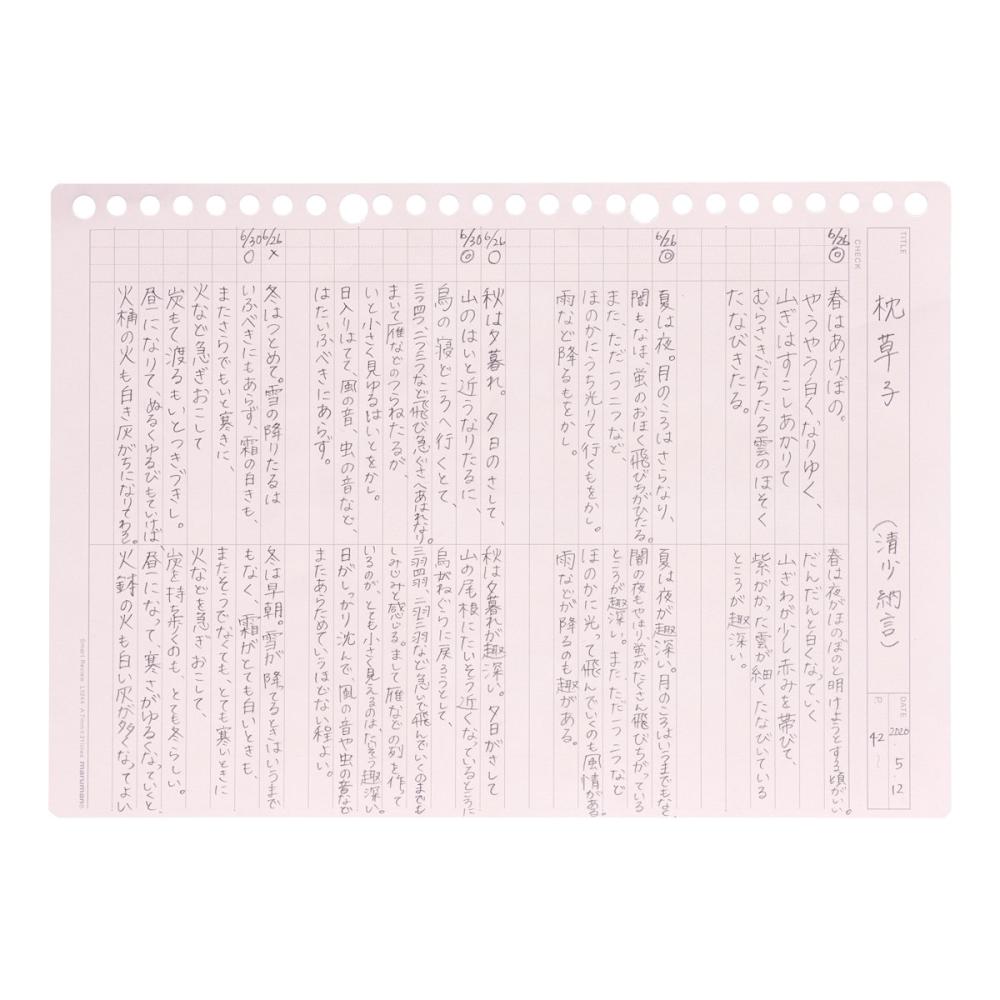 TITLE
枕草子 (清少納言)
DATE
2020.5.12
P. 42~
CHECK
6/26
◎
春はあけぼの。
やうやう白くなりゆく、
山ぎはすこしあかりて
むらさきだちたる雲のほそく
たなびきたる。
春は夜がほのぼのと明けようとする頃がいい。
だんだんと白くなっていく
山ぎわが少し赤みを帯びて、
紫がかった雲が細くたなびいている
ところが趣深い。
6/26
◎
夏は夜。月のころはさらなり、
闇もなほ、蛍のおほく飛びちがひたる。
また、ただ一つ二つなど、
ほのかにうち光りて行くもをかし。
雨など降るもをかし。
夏は夜が趣深い。月のころはいうまでもなく
闇の夜もやはり蛍がたくさん飛びちがっている
ところが趣深い。また、ただ一つ二つなど
ほのかに光って飛んでいくのも風情がある
雨などが降るのも趣がある。
6/26
○
6/30
◎
秋は夕暮れ。夕日のさして、
山のはいと近うなりたるに、
烏の寝どころへ行くとて、
三つ四つ、二つ三つなど飛び急ぐさへあはれなり。
まいて雁などのつらねたるが、
いと小さく見ゆるはいとをかし。
日入りはてて、風の音、虫の音など、
はたいふべきにあらず。
秋は夕暮れが趣深い。夕日がさして
山の尾根にたいそう近くなっているところに
烏がねぐらに戻ろうとして、
三羽四羽、二羽三羽など急いで飛んでいくのまでも
しみじみと感じる。まして雁などの列を作って
いるのが、とても小さく見えるのは、たいそう趣深い。
日がしっかり沈んで、風の音や虫の音など
またあらためていうほどない程よい。
6/26
×
6/30
○
冬はつとめて。雪の降りたるは
いふべきにもあらず、霜の白きも、
またさらでもいと寒きに、
火など急ぎおこして
炭もて渡るもいとつきづきし。
昼になりて、ぬるくゆるびもていけば、
火桶の火も白き灰がちになりてわろし。
冬は早朝。雪が降ってるときはいうまで
もなく、霜がとても白いときも、
またそうでなくても、とても寒いときに
火などを急ぎおこして、
炭を持ち歩くのも、とても冬らしい。
昼になって、寒さがゆるくなっていくと
火鉢の火も白い灰が多くなってよい
marumanⓇ